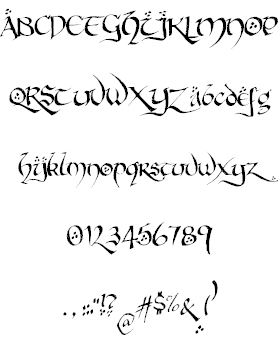 ABCDEFGHIJKLMNOP
QRSTUVWXYZabcdefg
hijklmnopqrstuvwxyz
0123456789
.,:;"'!?@#$%&()